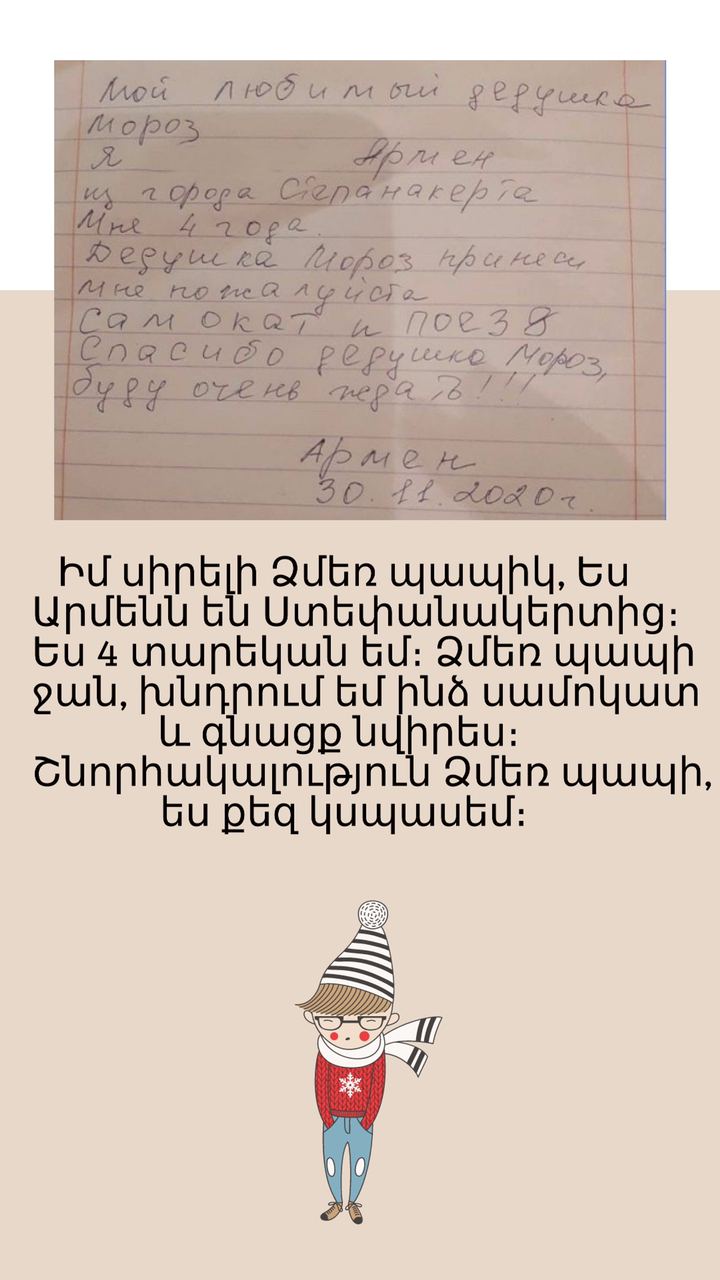 Мой любимый дедушка
мороз
Я Армен
из города Степанакерта
Мне 4 года.
Дедушка Мороз принеси
мне пожалуйста
самокат и поезд
Спасибо дедушка Мороз,
буду очень ждать!!!
Армен
30.11.2020г.
Իմ սիրելի Ձմեռ պապիկ, Ես
Արմենն են Ստեփանակերտից։
Ես 4 տարեկան եմ։ Ձմեռ պապի
ջան, խնդրում եմ ինձ սամոկատ
և գնացք նվիրես։
Շնորհակալություն Ձմեռ պապի,
ես քեզ կսպասեմ։